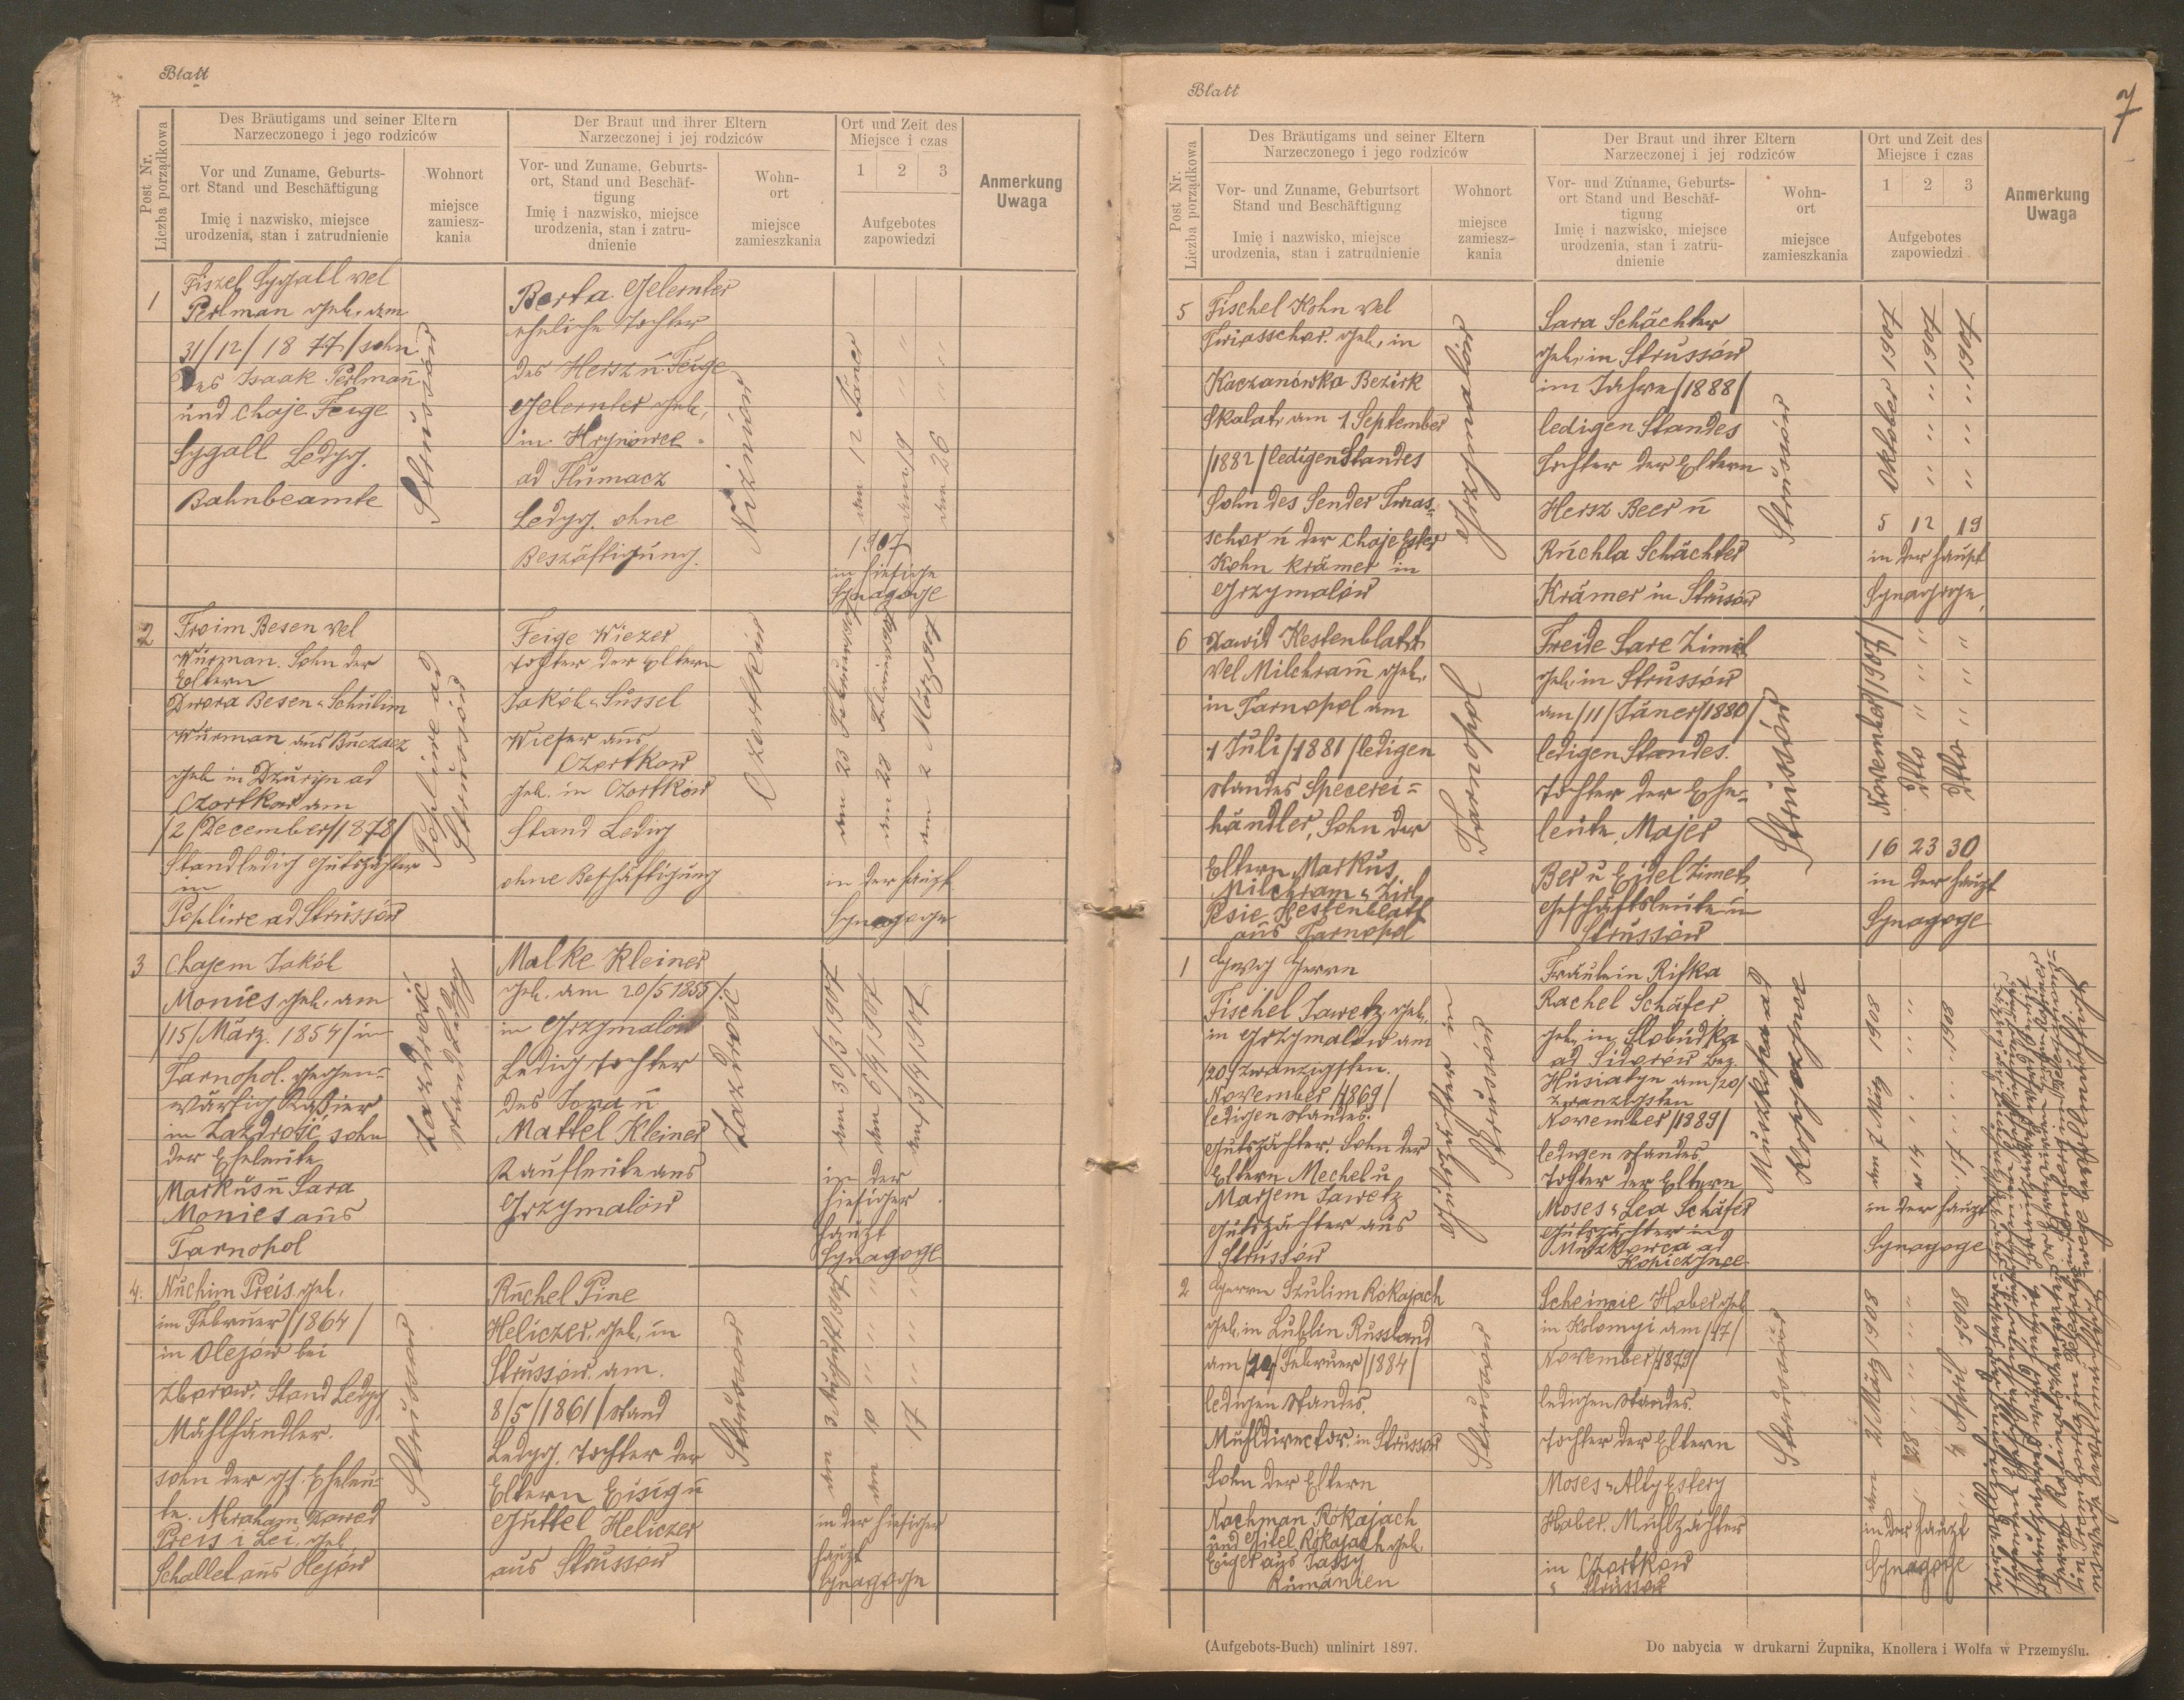 Blatt
Post Nr.
Liczba porządkowa
Des Bräutigams und seiner Eltern
Narzeczonego i jego rodziców
Vor und Zuname, Geburts-
ort Stand und Beschäftigung
Imię i nazwisko, miejsce
urodzenia, stan i zatrudnienie
Wohnort
miejsce
zamiesz-
kania
Der Braut und ihrer Eltern
Narzeczonej i jej rodziców
Vor- und Zuname, Geburts-
ort, Stand und Beschäf-
tigung
Imię i nazwisko, miejsce
urodzenia, stan i zatru-
dnienie
Wohn-
ort
miejsce
zamieszkania
Ort und Zeit des
Miejsce i czas
1 2 3
Aufgebotes
zapowiedzi
Anmerkung
Uwaga
1
Fiszel Sygall vel
Perlman geb. am
31/12/1877/ sohn
Des Isaak Perlman
und Chaje Feige
Sygall Ledig.
Bahnbeamte
Strussów
Berta Gelernter
eheliche Tochter
des Hersz u Feige
Gelernter geb,
in Hryniowce
ad Tłumacz
Ledig. ohne
Beszäftigung.
Niżniów
den 12 Jäner
den 19 " "
den 26 " "
1907
in hiesige
Synagoge
2
Froim Besen vel
Wurman. Sohn der
Eltern
Dwora Besen u Schulim
Wurman aus Buczacz
geb in Dzuryn ad
Czortkow am
/2/December/1878/
Stand ledig Gutspächter
in
Popliwe ad Strussów
Popliwe ad
Strussów
Feige Wiezer
tochter der Eltern
Jakób u Süssel
Wiefer aus
Czortkow
geb. in Czortków
Stand Ledig
ohne Beschäftigung
Czortków
den 23 Februar
den 28 Februar
den 2 März 1907
in der Haupt
Synagoge
3
Chajem Jakób
Monies geb. am
/15/März. 1854/ in
Tarnopol. gegen=
wärtig Kaßier
in Zazdrość sohn
der Eheleute
Markus u Sara
Monies aus
Tarnopol
Zazdrość
stand ledig
Malke Kleiner
geb. am 20/5 1855/
in Grzymalów
Ledig tochter
des Jona u
Mattel Kleiner
Kaufleute aus
Grzymalów
Zazdrość
den 30/3 1907
den 6/4 1907
den 13/4 1907
in der
hiesiger
Haupt
Synagoge
4.
Nuchim Preis geb.
im Februer/1864/
in Olejów bei
Zborow. Stand Ledig
Mählhändler.
sohn der gf. Eheleu-
te. Abraham Dawed
Preis i Lei, geb
Schallet aus Olejów
Strussów
Ruchel Pine
Heliczer, geb, in
Strussów am.
8/5/1861/ stand
Ledig. tochter der
Eltern Eisig u
Guttel Heliczer
aus Strussów
Strussów
den 3 August 1907
den 10 " "
17 " "
in der hiesiger
Haupt
Synagoge
Blatt
7
Post Nr.
Liczba porządkowa
Des Bräutigams und seiner Eltern
Narzeczonego i jego rodziców
Vor- und Zuname, Geburtsort
Stand und Beschäftigung
Imię i nazwisko, miejsce
urodzenia, stan i zatrudnienie
Wohnort
miejsce
zamiesz-
kania
Der Braut und ihrer Eltern
Narzeczonej i jej rodziców
Vor- und Zuname, Geburts-
ort Stand und Beschäf-
tigung
Imię i nazwisko, miejsce
urodzenia, stan i zatru-
dnienie
Wohn-
ort
miejsce
zamieszkania
Ort und Zeit des
Miejsce i czas
1 2 3
Aufgebotes
zapowiedzi
Anmerkung
Uwaga
5
Fischel Kohn vel
geb, in
Kaczanówka Bezirk
Skalat, am 1 September
/1882/ ledigen Standes
Sohn des Sender
schor u der Chaje Ester
Kohn krämer in
Grzymalów
Grzymalów
Sara Schächter
geb, in Strussów
im Jahre /1888/
ledigen Standes
Tochter der Eltern
Hersz Beer u
Ruchla Schächter
Krämer in Strusów
Strussów
5 Oktober 1907
12 " " 1907
19 " " 1907
in der Haupt
Synagoge,
6
Dawid Kestenblatt
vel Milchram geb.
in Tarnopol am
1 Juli/1881/ledigen
standes Specerei=
händler, Sohn der
Eltern Markus
Milchram u Zirl
Pesie Kestenblatt
aus Tarnopol
Tarnopol
Freide Sare Zimet
geb, in Strussów
am/11/Jäner/1880/
ledigen Standes.
tochter der Ehe=
leute, Majer
Ber u Eidel Zimet
Geschäftsleute in
Strussów
Strussów
November/1907/
ditto " "
ditto " "
16 23 30
in der Haupt
Synagoge
1
Herrn
Fischel Jawetz geb,
in Grzymalow am
/20/zwanzigsten.
November/1869/
ledigen standes.
Gutspächter. Sohn der
Eltern Mechel u
Marjem Jawetz
Gutspächter aus
Strussów
Gutspächter in
Strussów
Fräulein Rifka
Rachel Schäfer
geb, in Slobudka
ad Sidorów bez.
Husiatyn am/20/
zwanzigsten
November/1889/
ledigen standes
Tochter der Eltern
Moses u Lea Schäfer
Gutspächter in
Muszkowca ad
Kopiczynce
Kopyczynce
den 7 März 1908
" 14 " "
" 17 " " 1908
in der Haupt
Synagoge
2
Herrn Szulim Rokajach
geb, in Lublin Russland
am Februer/1884/
ledigen standes,
Muhldirector, in Strussow
Sohn der Eltern
Nachman Rokajach
und Gitel Rokajach geb.
Euger aus Jassy
Rumänien
Strussow
Scheincie Haber geb
in Kolomyi am/17/
November/1879/
ledigen standes.
Tochter der Eltern
Haber. Muhlpächter
in Czortkow
" Strussów
Strussów
den 21 März 1908
28 " "
4 April 1908
in der Haupt
Synagoge
(Aufgebots-Buch) unlinirt 1897.
Do nabycia w drukarni Żupnika, Knollera i Wolfa w Przemyślu.